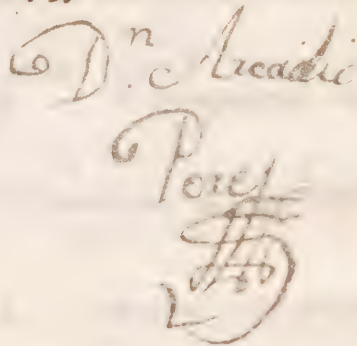 D.n Arcadio
Perez